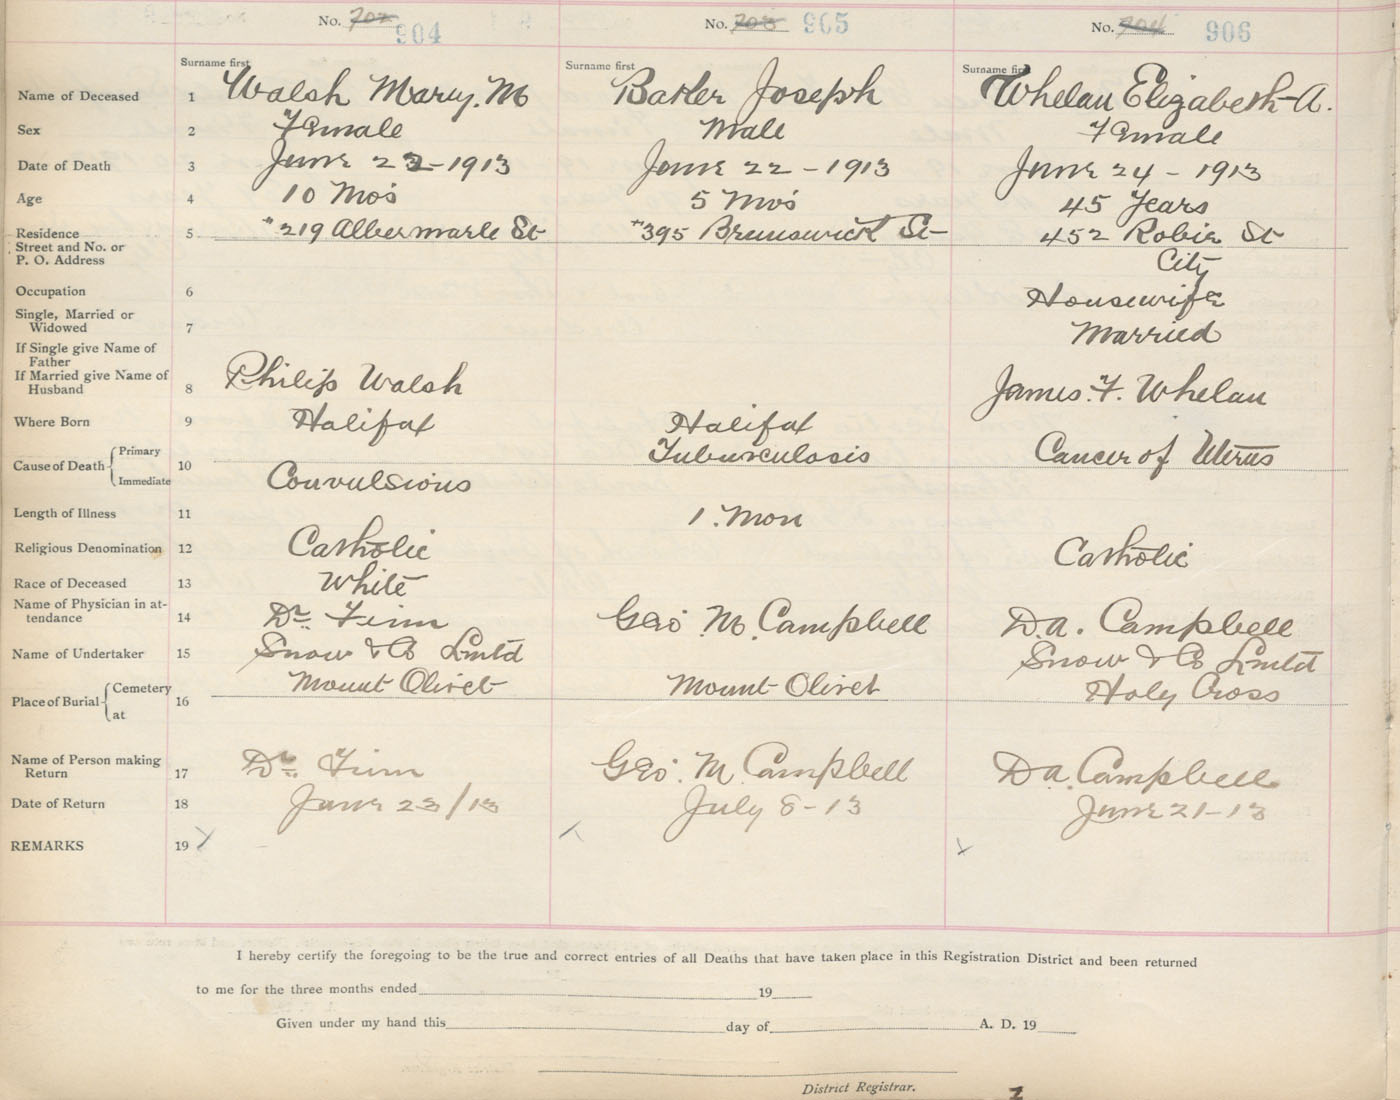 No. 702 904 No. 703 905 No. 704 906
Surname first Surname first Surname first
Name of Deceased 1 Walsh Mary. M Barler Joseph Whelan Elizabeth-A.
Sex 2 Female Male Female
Date of Death 3 June 23-1913 June 22-1913 June 24-1913
Age 4 10 Mo's 5 Mo's 45 Years
Residence 5 #219 Albermarle St #395 Brunswick St- 452 Robie St
Street and No. or
P. O. Address City
Occupation 6 Housewife
Single, Married or
Widowed 7 Married
If Single give Name of
Father
If Married give Name of
Husband 8 Philip Walsh James. F. Whelan
Where Born 9 Halifax Halifax
Cause of Death Primary Tuburculosis Cancer of Uterus
10
Immediate Convulsions
Length of Illness 11 1. Mon
Religious Denomination 12 Catholic Catholic
Race of Deceased 13 White
Name of Physician in at-
tendance 14 Dr. Finn Geo. M. Campbell D.A. Campbell
Name of Undertaker 15 Snow & Co Lmtd Snow & Co Lmtd
Place of Burial Cemetery Mount Olivet Mount Olivet Holy Cross
16
at
Name of Person making
Return 17 Dr. Finn Geo. M. Campbell D A. Campbell
Date of Return 18 June 23/13 July 8-13 June 21-13
REMARKS 19
I hereby certify the foregoing to be the true and correct entries of all Deaths that have taken place in this Registration District and been returned
to me for the three months ended 19
Given under my hand this day of A. D. 19
District Registrar.